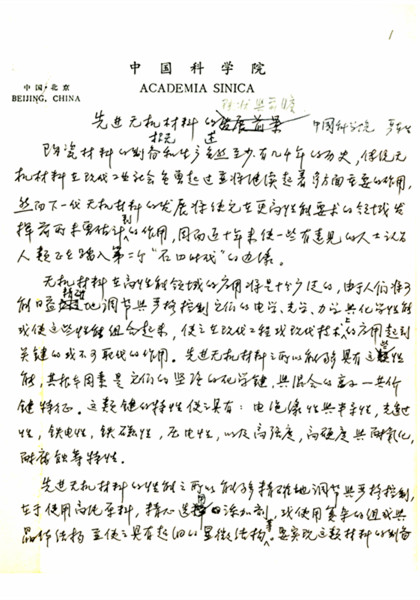 1
中国科学院
中国·北京
BEIJING, CHINA
ACADEMIA SINICA
现状与展望
先进无机材料的发展前景 中国科学院
陶瓷材料的制备和生产虽然至少有几千年的历史，传统无
机材料在现代工业社会也曾起过并将继续起着多方面重要的作用，
然而下一代无机材料的发展将使它在更高性能要求的领域发
挥前所未曾估计到的作用，因而近十年来使一些有远见的人士认为
人类正在踏入第二个“石器时代”的边缘。
无机材料在高性能领域的应用将是十分广泛的，由于人们将可
能日益精确地调节与严格控制它们的电学、光学、力学与化学性能
或使这些性能组合起来，使之在现代工程或现代技术上的应用起到
关键的或不可取代的作用。先进无机材料之所以能够具有这些性
能，其根本因素是它们的坚强的化学键，与混合的离子—共价
键特征。这类键的特性使之具有：电绝缘性与半导性，光透过
性，铁电性，铁磁性，压电性，以及高强度，高硬度与耐氧化，
耐腐蚀等特性。
先进无机材料的性能之所以能够精确地调节与严格控制，
在于使用高纯原料，精心选用的添加剂，或使用复杂的组成与
晶体结构 并使之具有 的显微结构等。要实现这类材料的制备